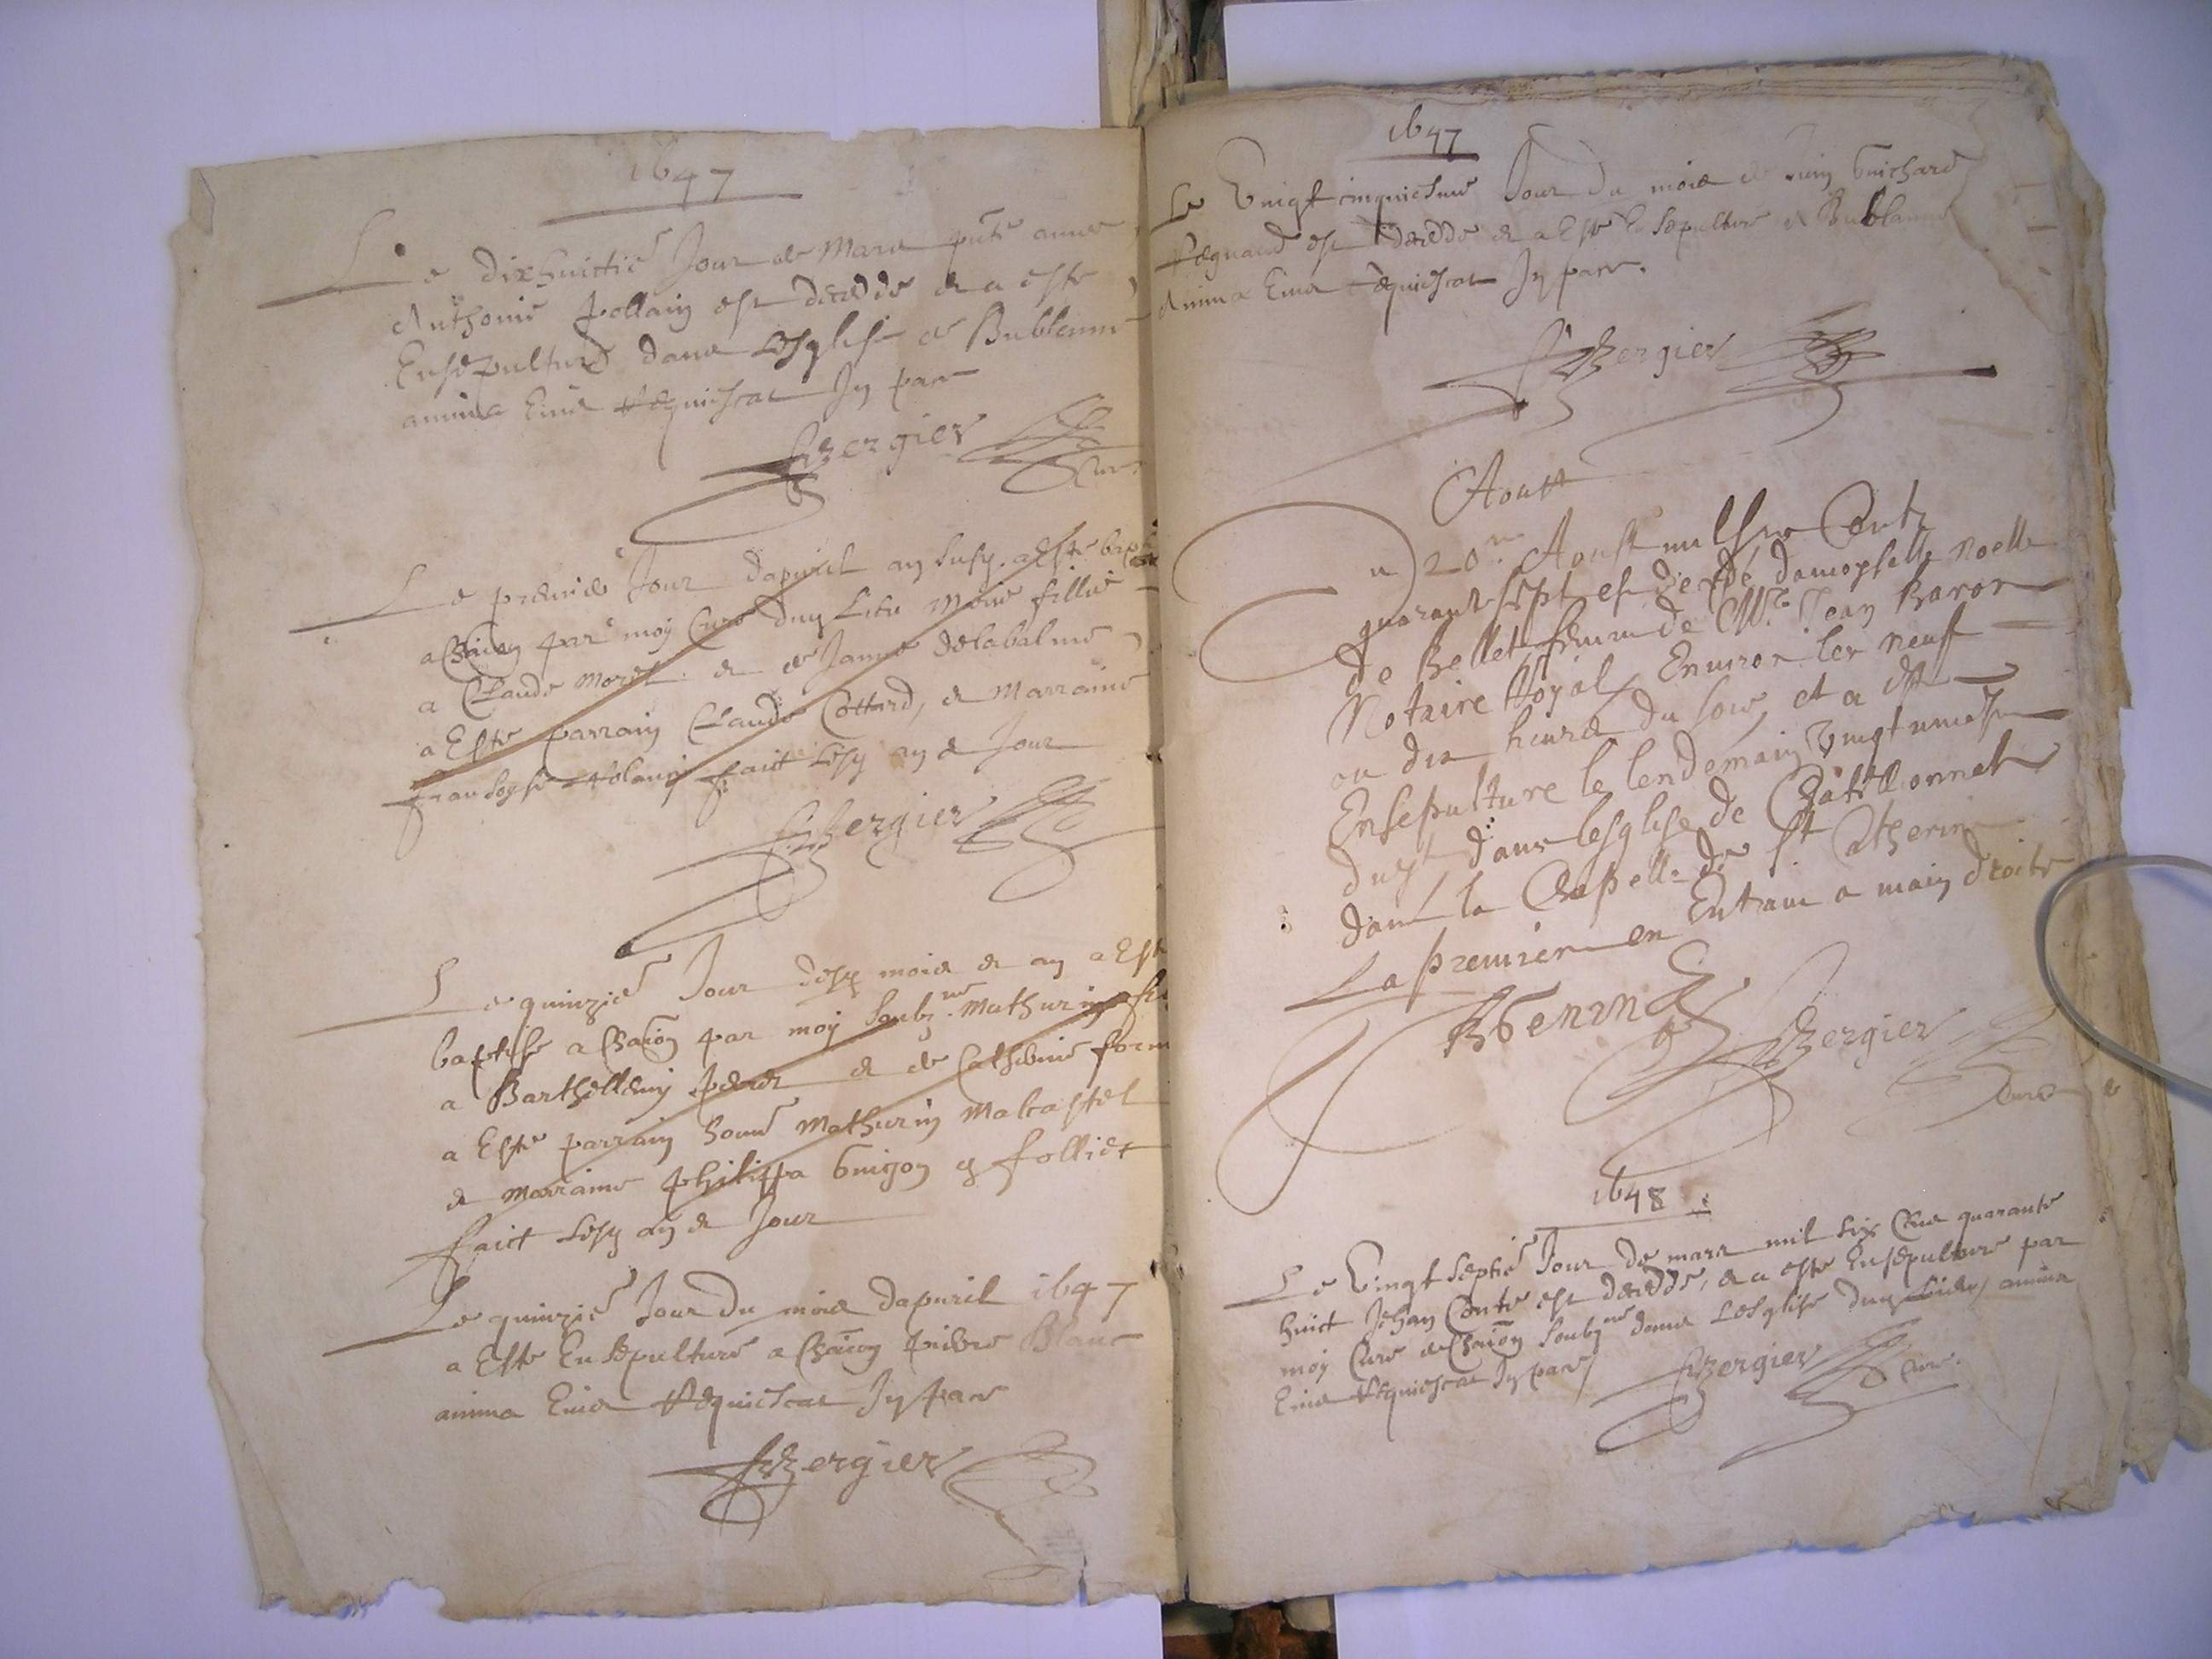 1647
Le dixhuictie Jour de Mars pnte annee
Anthonie pollain est decedde & a este
Ensepulture dans Lesglise de Bublanne
anima Eius Requiescat In pace
Bergier
Cure
Le premier Jour dapvril an susd. a este bap
a Chaion par moy Cure dud Lieu Morie fillie
a Claude Morel & de Janne Delabalme
a Este parrain Claude Cottard, & Marraine
fransoyse Roland faict Lesd an & Jour
Bergier
Le quinzie Jour desd mois & an a Este
baptise a Chaion par moy soubz.ne Mathurin fi
a Barthellemy & de Catherine
a Este parrain honne Mathurin Malcastel
& Marraine philippa Guigon &
faict Lesd an & Jour
Le quinzie Jour du mois dapvril 1647
a Este Ensepulture a Chaion pierre Blanc
anima Eius Requiescat In pace
Bergier
1647
Le Vingt cinquiesme Jour du mois de Juin Guichard
est decedde & a Este Ensepulture a Bublanne
Anima Eius Requiescat In pace.
Bergier
Aoust
Du 20me Aoust mil six Centz
quarante sept est decedé damoyselle Noelle
de Bellet femme de Mre Jean Baron
Notaire Royal, Environ les neuf
ou dix heures du soir, et a esté
Ensepulture le lendemain vingt uniesme
dud dans lesglise de Châtillonnet
dans la Chapelle de St Catherine
La premiere en Entrant a main droite
Bergier
Cure
1648
Le Vingt septie Jour de mars mil six Cens quarante
huict Jehan Conte est decedde, & a este Ensepulture par
moy Cure de Chaion soubz.ne dans Lesglise dud Lieu, anima
Eius Requiescat In pace
Bergier
Cure.